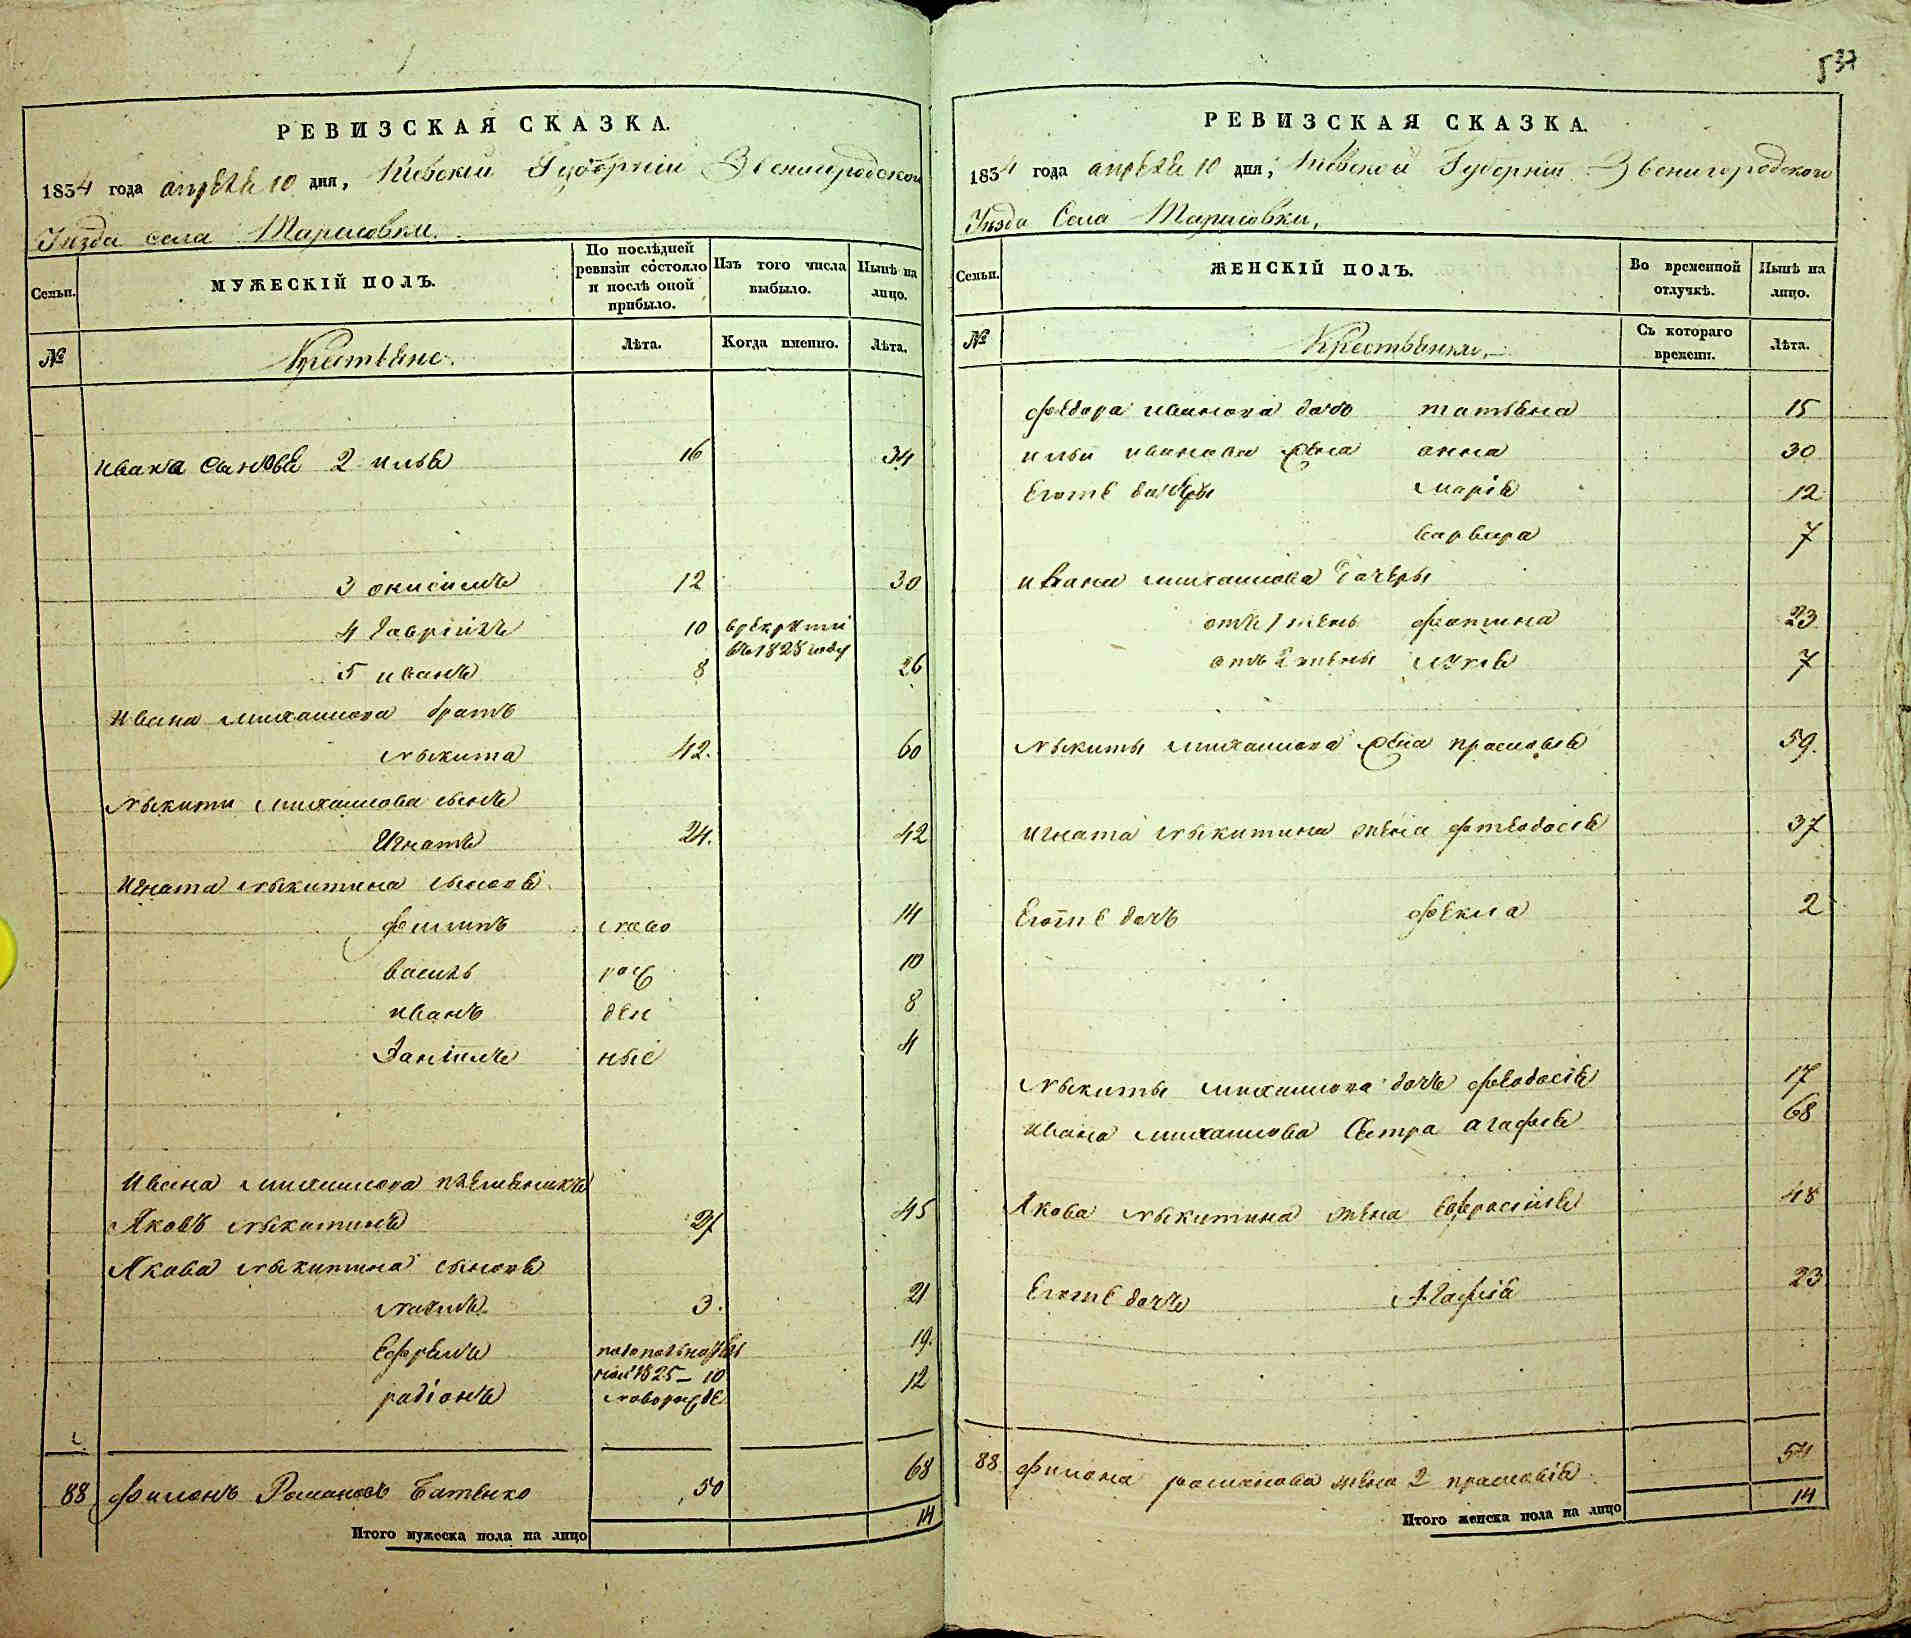 537
РЕВИЗСКАЯ СКАЗКА.
1834 года апрѣля 10 дня, Кіевской Губерніи Звенигородскои
Уѣзда села Тарасовки.
Семьи.
МУЖЕСКІЙ ПОЛЪ.
По послѣдней ревизіи состояло и послѣ оной прибыло.
Изъ того числа выбыло.
Нынѣ на лицо.
№
Крестьяне.
Лѣта.
Когда именно.
Лѣта.
Ивана сыновѣ 2 илья 16 34
3 онисимъ 12 30
4 Гавріилъ 10 врекруты
въ 1828 году
5 иванъ 8 26
Ивана михаилова братъ
мыкита 42. 60
мыкити михаилова сынъ
Игнатъ 24. 42
Игната мыкитина сыновѣ
филипъ ново 14
василь рож 10
иванъ ден 8
Даніилъ ные 4
Ивана михаилова племѣникъ
Яковъ мыкитинъ 27 45
Якова мыкитина сыновѣ
3. 21
Ефремъ 19.
1825 – 10
радіонъ новорожде 12
88 филонъ Романовъ Батенко 50 68
Итого мужеска пола на лицо 14
РЕВИЗСКАЯ СКАЗКА.
1834 года апрѣля 10 дня, Кіевской Губерніи Звенигородского
Уѣзда Села Тарасовки,
Семьи.
ЖЕНСКІЙ ПОЛЪ.
Во временной отлучкѣ.
Нынѣ на лицо.
№
Крестьянки,
Съ котораго времени.
Лѣта.
федора иванова дочь татьяна 15
ильи иванова жена анна 30
Егоже дочеры марія 12
варвара 7
ивана михаилова дочеры
отъ 1 жены фотина 23
отъ 2 жены 7
мыкиты михаилова жена прасковья 59.
игната мыкитина жена феодосія 37
Егоже дочъ фекла 2
мыкиты михаилова дочъ феодосія 17
ивана михаилова сестра агафія 68
Якова мыкитина жена Ефросінія 48
Егоже дочъ Агафія 23
88 филона романова жена 2 прасковія 54
Итого женска пола на лицо 14